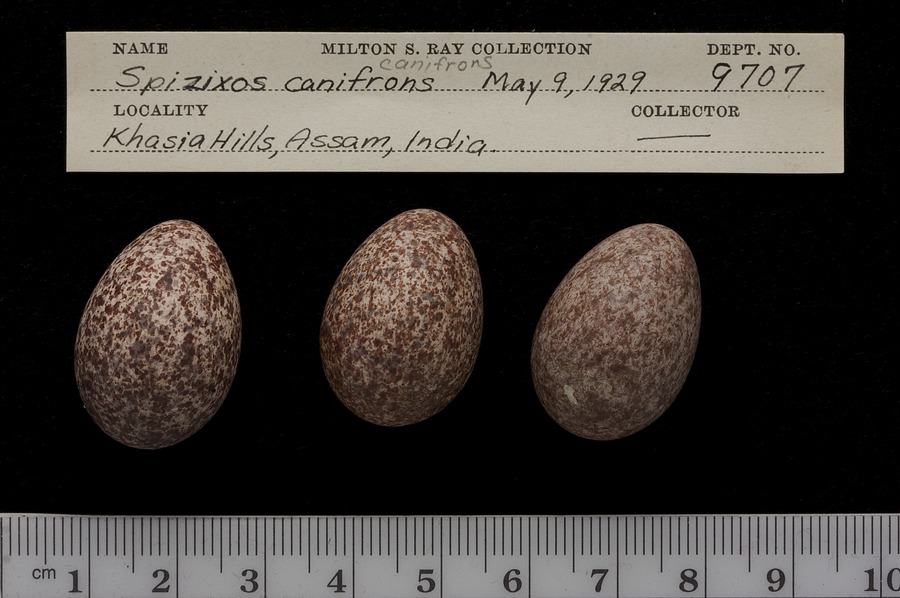 NAME MILTON S. RAY COLLECTION DEPT. NO.
canifrons
Spizixos canifrons May 9, 1929 9707
LOCALITY COLLECTOR
Khasia Hills, Assam, India.
cm 1 2 3 4 5 6 7 8 9 10